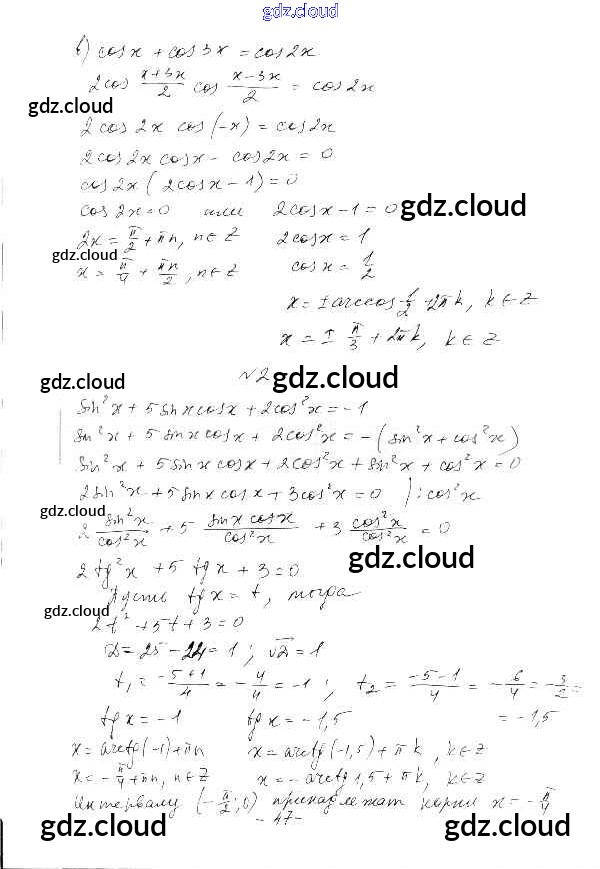 gdz.cloud
в) cos x + cos 3x = cos 2x
2 cos (x+3x)/2 cos (x-3x)/2 = cos 2x
gdz.cloud
2 cos 2x cos (-x) = cos 2x
2 cos 2x cos x - cos 2x = 0
cos 2x (2 cos x - 1) = 0
cos 2x = 0 или 2 cos x - 1 = 0 gdz.cloud
2x = π/2 + πn, n ∈ Z 2 cos x = 1
gdz.cloud
x = π/4 + πn/2, n ∈ Z cos x = 1/2
x = ± arccos 1/2 + 2πk, k ∈ Z
x = ± π/3 + 2πk, k ∈ Z
gdz.cloud №2 gdz.cloud
sin²x + 5 sin x cos x + 2 cos²x = -1
sin²x + 5 sin x cos x + 2 cos²x = -(sin²x + cos²x)
sin²x + 5 sin x cos x + 2 cos²x + sin²x + cos²x = 0
2 sin²x + 5 sin x cos x + 3 cos²x = 0 ) : cos²x
gdz.cloud
2 sin²x/cos²x + 5 sin x cos x/cos²x + 3 cos²x/cos²x = 0
gdz.cloud
2 tg²x + 5 tg x + 3 = 0
Пусть tg x = t, тогда
gdz.cloud
2t² + 5t + 3 = 0
D = 25 - 24 = 1; √D = 1
t₁ = (-5+1)/4 = -4/4 = -1; t₂ = (-5-1)/4 = -6/4 = -3/2 =
tg x = -1 tg x = -1,5 = -1,5
x = arctg(-1) + πn x = arctg(-1,5) + πk, k ∈ Z
x = -π/4 + πn, n ∈ Z x = -arctg 1,5 + πk, k ∈ Z
Интервалу (-π/2; 0) принадлежат корни x = -π/4
- 47 -
gdz.cloud gdz.cloud